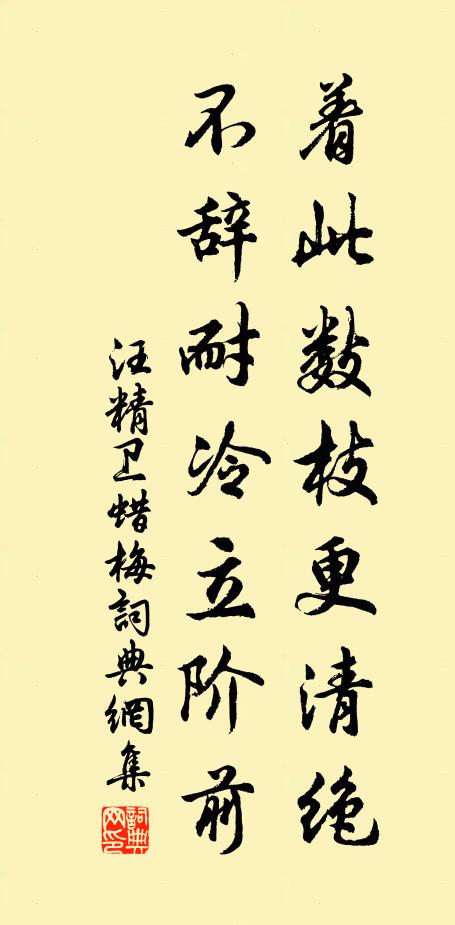 着此数枝更清绝
不辞耐冷立阶前
汪精卫蜡梅詞典網集
詞典
网印